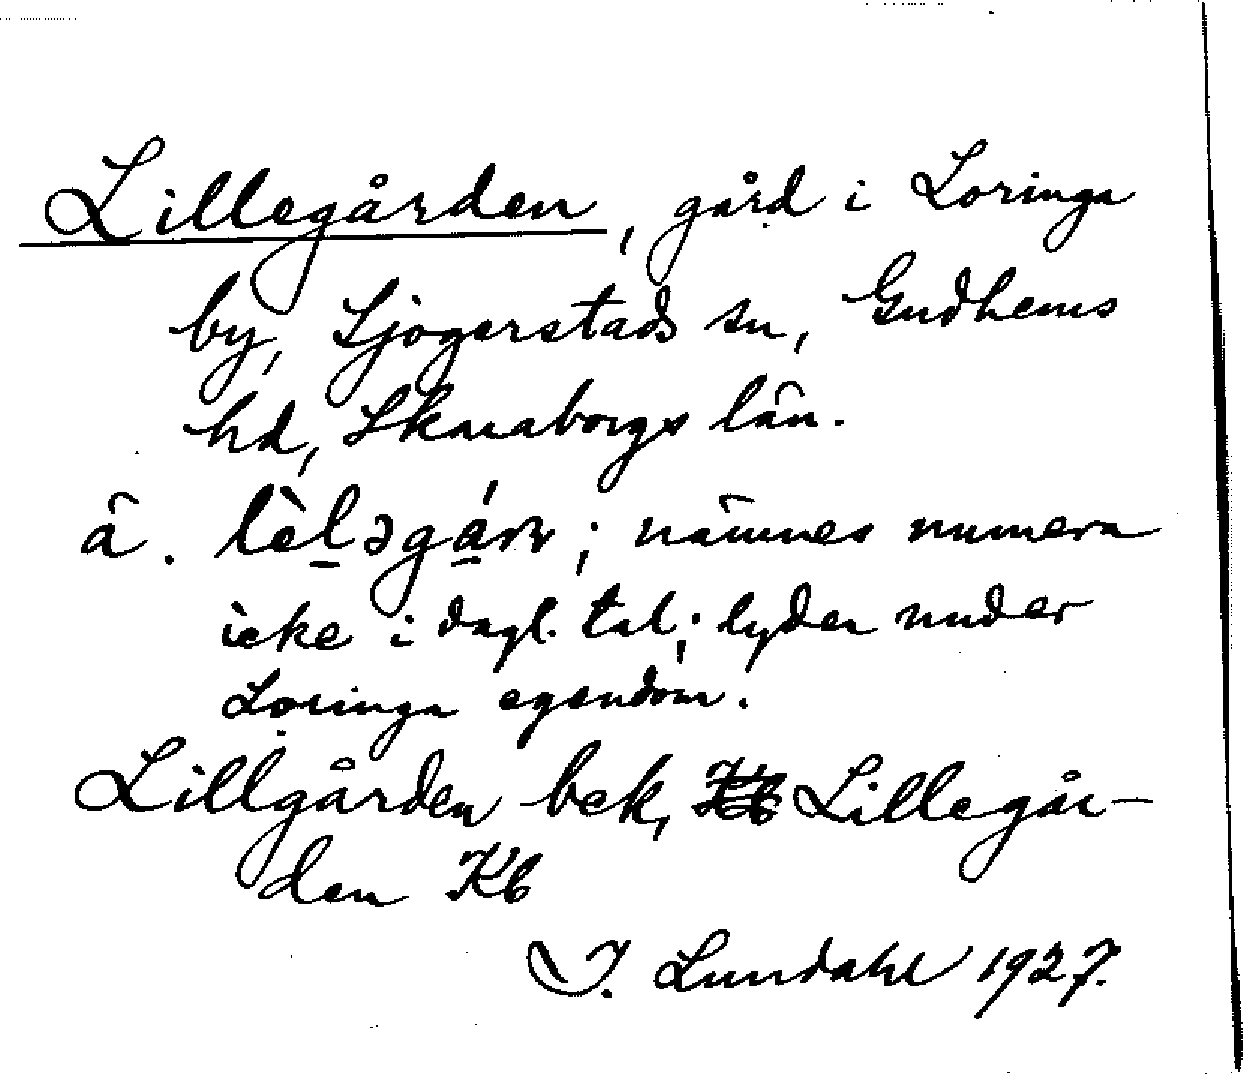 Lillegården, gård i Loringa
by, Sjogerstads sn, Gudhems
hd, Skaraborgs län.
â. lèləgá; nämnes numera
icke i dagl. tal; lyder under
Loringa egendom.
Lillgården bek, Lillegår-
den Kb
I. Lundahl 1927.